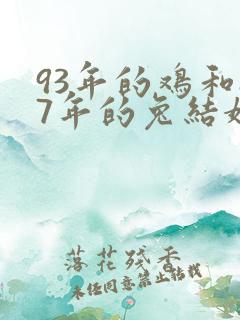 93年的鸡和
7年的兔结
落花残香
未经同意禁止转载